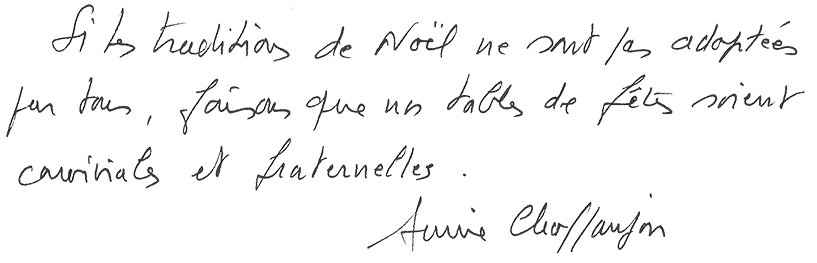 Si les traditions de Noël ne sont pas adoptées
par tous, faisons que nos tables de fêtes soient
conviviales et fraternelles.
Annie Chaffanjon